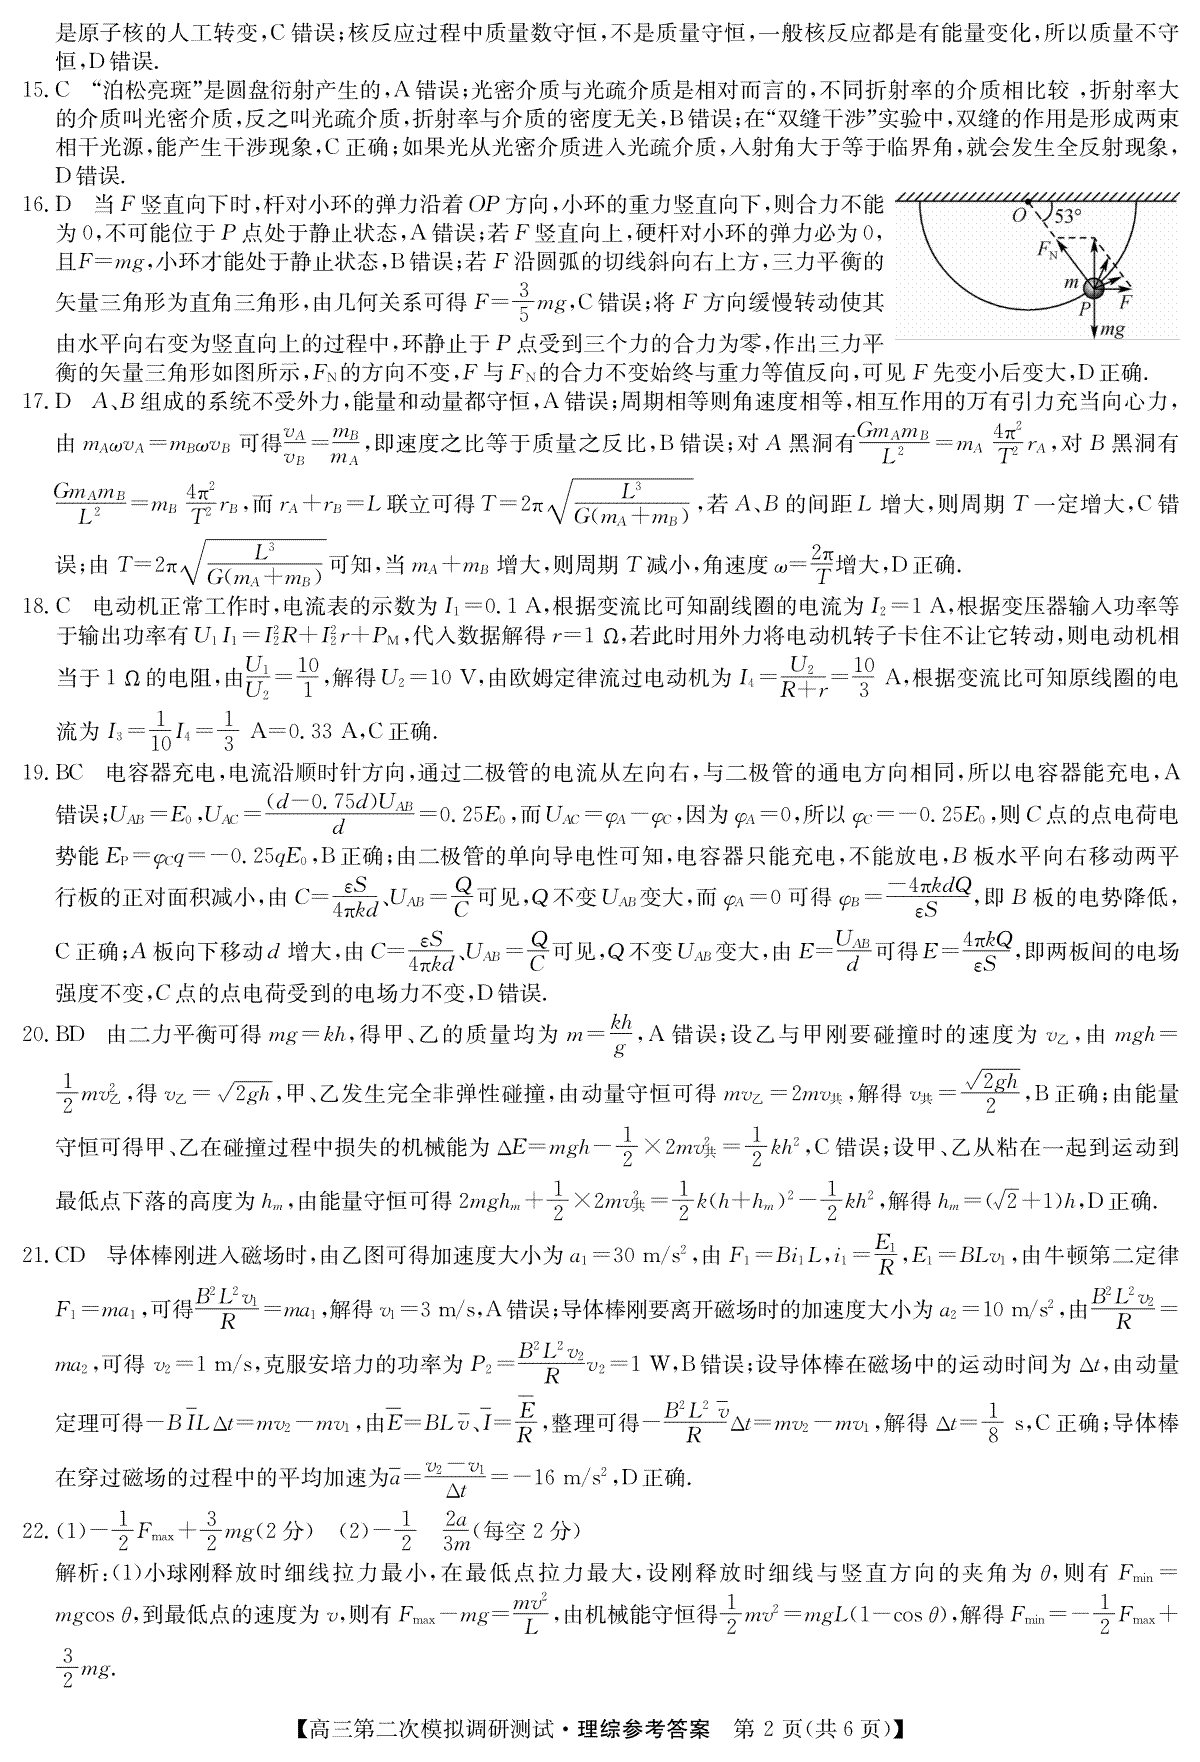 是原子核的人工转变,C错误;核反应过程中质量数守恒,不是质量守恒,一般核反应都是有能量变化,所以质量不守
恒,D错误.
15. C “泊松亮斑”是圆盘衍射产生的,A错误;光密介质与光疏介质是相对而言的,不同折射率的介质相比较 ,折射率大
的介质叫光密介质,反之叫光疏介质,折射率与介质的密度无关,B错误;在“双缝干涉”实验中,双缝的作用是形成两束
相干光源,能产生干涉现象,C正确;如果光从光密介质进入光疏介质,入射角大于等于临界角,就会发生全反射现象,
D错误.
16. D 当F竖直向下时,杆对小环的弹力沿着OP方向,小环的重力竖直向下,则合力不能
为0,不可能位于P点处于静止状态,A错误;若F竖直向上,硬杆对小环的弹力必为0,
且F=mg,小环才能处于静止状态,B错误;若F沿圆弧的切线斜向右上方,三力平衡的
矢量三角形为直角三角形,由几何关系可得F=3/5 mg,C错误;将F方向缓慢转动使其
由水平向右变为竖直向上的过程中,环静止于P点受到三个力的合力为零,作出三力平
衡的矢量三角形如图所示,F_N的方向不变,F与F_N的合力不变始终与重力等值反向,可见F先变小后变大,D正确.
O 53°
F_N
m
P F
mg
17. D A、B组成的系统不受外力,能量和动量都守恒,A错误;周期相等则角速度相等,相互作用的万有引力充当向心力,
由m_Aωv_A=m_Bωv_B可得v_A/v_B=m_B/m_A,即速度之比等于质量之反比,B错误;对A黑洞有Gm_Am_B/L²=m_A 4π²/T² r_A,对B黑洞有
Gm_Am_B/L²=m_B 4π²/T² r_B,而r_A+r_B=L联立可得T=2π√(L³/G(m_A+m_B)),若A、B的间距L增大,则周期T一定增大,C错
误;由T=2π√(L³/G(m_A+m_B))可知,当m_A+m_B增大,则周期T减小,角速度ω=2π/T增大,D正确.
18. C 电动机正常工作时,电流表的示数为I₁=0.1 A,根据变流比可知副线圈的电流为I₂=1 A,根据变压器输入功率等
于输出功率有U₁I₁=I₂²R+I₂²r+P_M,代入数据解得r=1 Ω,若此时用外力将电动机转子卡住不让它转动,则电动机相
当于1 Ω的电阻,由U₁/U₂=10/1,解得U₂=10 V,由欧姆定律流过电动机为I₄=U₂/(R+r)=10/3 A,根据变流比可知原线圈的电
流为I₃=1/10 I₄=1/3 A=0.33 A,C正确.
19. BC 电容器充电,电流沿顺时针方向,通过二极管的电流从左向右,与二极管的通电方向相同,所以电容器能充电,A
错误;U_AB=E₀,U_AC=(d-0.75d)U_AB/d=0.25E₀,而U_AC=φ_A-φ_C,因为φ_A=0,所以φ_C=-0.25E₀,则C点的点电荷电
势能E_P=φ_Cq=-0.25qE₀,B正确;由二极管的单向导电性可知,电容器只能充电,不能放电,B板水平向右移动两平
行板的正对面积减小,由C=εS/4πkd、U_AB=Q/C可见,Q不变U_AB变大,而φ_A=0可得φ_B=-4πkdQ/εS,即B板的电势降低,
C正确;A板向下移动d增大,由C=εS/4πkd、U_AB=Q/C可见,Q不变U_AB变大,由E=U_AB/d可得E=4πkQ/εS,即两板间的电场
强度不变,C点的点电荷受到的电场力不变,D错误.
20. BD 由二力平衡可得mg=kh,得甲、乙的质量均为m=kh/g,A错误;设乙与甲刚要碰撞时的速度为v乙,由mgh=
1/2 mv乙²,得v乙=√2gh,甲、乙发生完全非弹性碰撞,由动量守恒可得mv乙=2mv共,解得v共=√2gh/2,B正确;由能量
守恒可得甲、乙在碰撞过程中损失的机械能为ΔE=mgh-1/2×2mv共²=1/2 kh²,C错误;设甲、乙从粘在一起到运动到
最低点下落的高度为h_m,由能量守恒可得2mgh_m+1/2×2mv共²=1/2 k(h+h_m)²-1/2 kh²,解得h_m=(√2+1)h,D正确.
21. CD 导体棒刚进入磁场时,由乙图可得加速度大小为a₁=30 m/s²,由F₁=Bi₁L,i₁=E₁/R,E₁=BLv₁,由牛顿第二定律
F₁=ma₁,可得B²L²v₁/R=ma₁,解得v₁=3 m/s,A错误;导体棒刚要离开磁场时的加速度大小为a₂=10 m/s²,由B²L²v₂/R=
ma₂,可得v₂=1 m/s,克服安培力的功率为P₂=B²L²v₂/R v₂=1 W,B错误;设导体棒在磁场中的运动时间为Δt,由动量
定理可得-BI̅LΔt=mv₂-mv₁,由E̅=BLv̅、I̅=E̅/R,整理可得-B²L²v̅/R Δt=mv₂-mv₁,解得Δt=1/8 s,C正确;导体棒
在穿过磁场的过程中的平均加速为a̅=(v₂-v₁)/Δt=-16 m/s²,D正确.
22. (1)-1/2 F_max+3/2 mg(2分) (2)-1/2 2a/3m(每空2分)
解析:(1)小球刚释放时细线拉力最小,在最低点拉力最大,设刚释放时细线与竖直方向的夹角为θ,则有F_min=
mgcos θ,到最低点的速度为v,则有F_max-mg=mv²/L,由机械能守恒得1/2 mv²=mgL(1-cos θ),解得F_min=-1/2 F_max+
3/2 mg.
【高三第二次模拟调研测试·理综参考答案 第2页(共6页)】